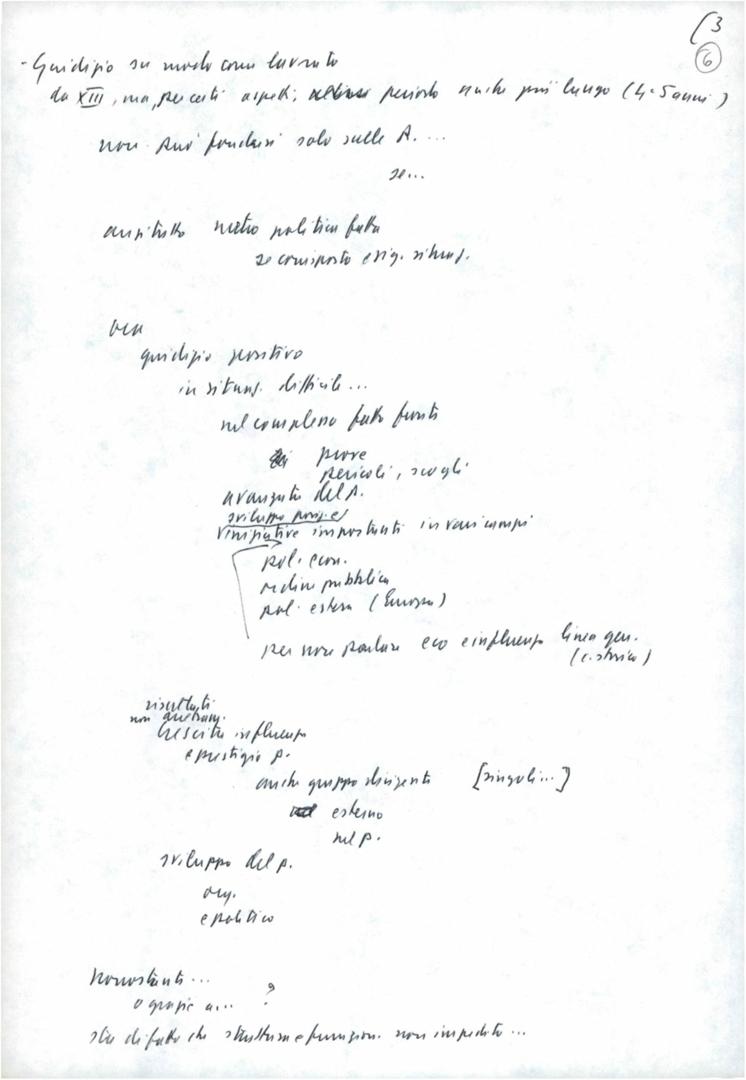 [3
6
- Giudizio su modo come lavorato
da XIII, ma, per certi aspetti, periodo anche più lungo (4-5 anni)
non può fondarsi solo sulle A. ...
se...
anzitutto metro politica fatta
se corrisposto esig. situaz.
ora
giudizio positivo
in situaz. difficile...
nel complesso fatto fronte
prove
pericoli, scogli
avanzata del P.
sviluppo
iniziative importanti in vari campi
pol. econ.
ordine pubblico
pol. estera (Europa)
per non parlare eco e influenza linea gen.
(c. storico)
risultati
non
Crescita influenza
e prestigio p.
anche gruppo dirigente [singoli...]
esterno
nel p.
sviluppo del p.
org.
e politico
Nonostante...
o grazie a... ?
sta di fatto che struttura e funzion. non impedito...